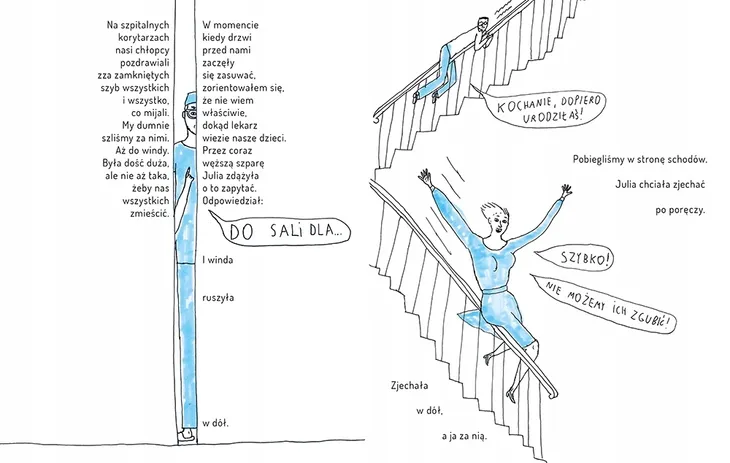 Na szpitalnych
korytarzach
nasi chłopcy
pozdrawiali
zza zamkniętych
szyb wszystkich
i wszystko,
co mijali.
My dumnie
szliśmy za nimi.
Aż do windy.
Była dość duża,
ale nie aż taka,
żeby nas
wszystkich
zmieścić.
W momencie
kiedy drzwi
przed nami
zaczęły
się zasuwać,
zorientowałem się,
że nie wiem
właściwie,
dokąd lekarz
wiezie nasze dzieci.
Przez coraz
węższą szparę
Julia zdążyła
o to zapytać.
Odpowiedział:
DO SALI DLA...
I winda
ruszyła
w dół.
KOCHANIE, DOPIERO
URODZIŁAŚ!
Pobiegliśmy w stronę schodów.
Julia chciała zjechać
po poręczy.
SZYBKO!
NIE MOŻEMY ICH ZGUBIĆ!
Zjechała
w dół,
a ja za nią.